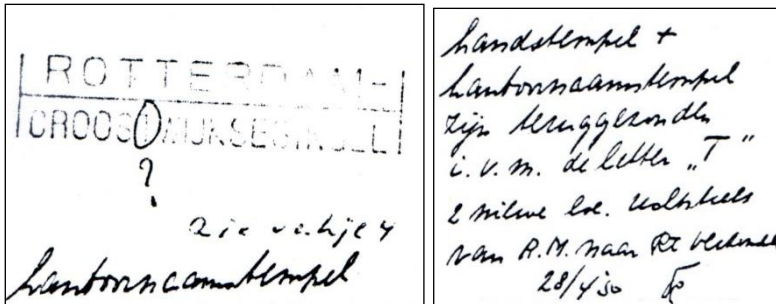 ROTTERDAM-
CROOSTWIJKSESINGEL
?
zie
kantoornaamstempel
handstempel +
kantoornaamstempel
zijn teruggezonden
i.v.m. de letter „T"
2 nieuwe
van R.M. naar Rt
28/4'50